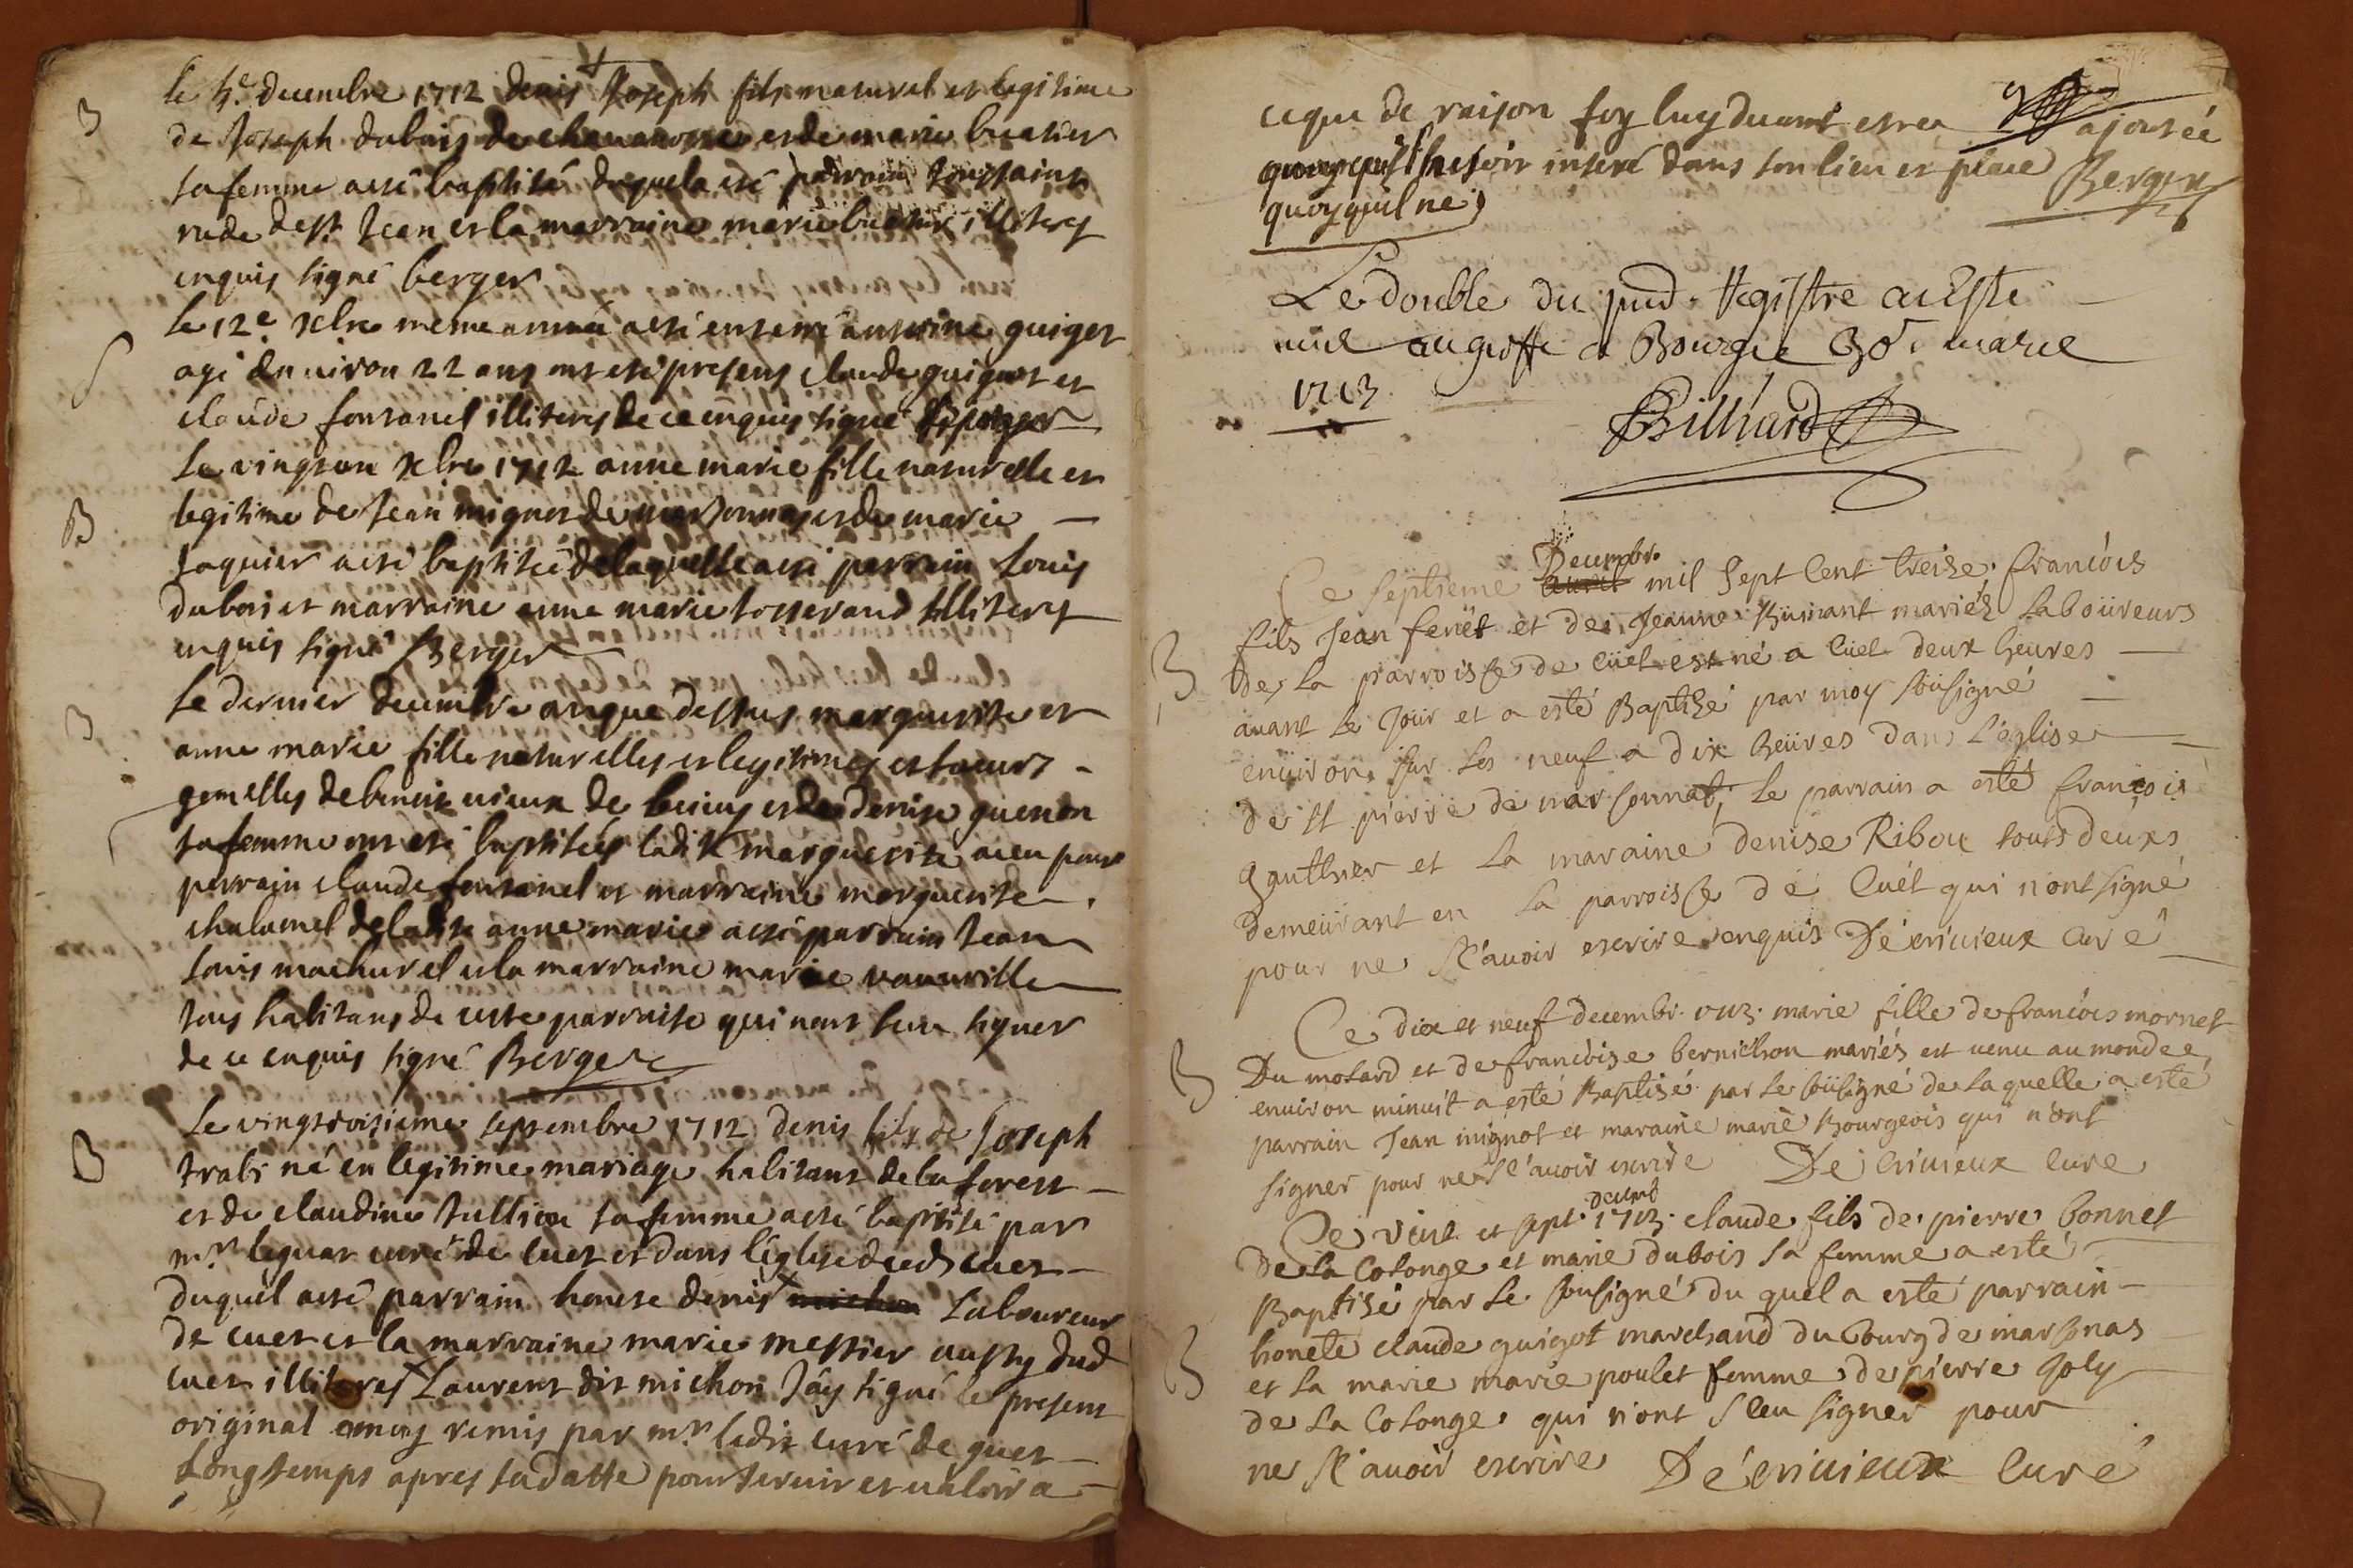 B
le 4e decembre 1712 denis Joseph fils naturel et legitime
de Joseph dubois de et de marie buatier
sa femme a esté baptisé duquel a esté parrain toussaint
rude de st Jean et la marraine marie buatier illiteres
enquis signé berger
S
le 12e xbre meme année a esté enterré antoine guigot
agé denviron 22 ans ont esté presens claude guigot et
claude fontanel illiteres de ce enquis signé Berger
B
le vingt un xbre 1712 anne marie fille naturelle et
legitime de Jean mignot de marsonnas et de marie
Jaquier a esté baptisée de laquelle a esté parrain louis
dubois et marraine anne marie tosserand illiteres
enquis signé Berger
B
le dernier decembre an que dessus marguerite et
anne marie fille naturelles et legitimes et soeurs
gemelles de benoit vieux de et de denise guenon
sa femme ont esté baptisées ladite marguerite a eu pour
parrain claude fontanel et marraine marguerite
chalamel de ladite anne marie a esté parrain Jean
louis machurel et la marraine marie
tous habitans de cette parroise qui nont sceu signer
de ce enquis signé Berger
B
Le vingt troisieme septembre 1712 denis fils de Joseph
trabi né en legitime mariage habitant de la forest
et de claudine Jullien sa femme a esté baptisé par
mr leguat curé de cuet et dans l'église dud cuet
duquel a esté parrain honete denis michon laboureur
de cuet et la marraine marie messier aussy dud
cuet illiteres Laurent dit michon Jay signé le present
original a moy remis par mr ledit curé de quet
longtemps apres sa datte pour servir et valoir a
ce que de raison foy luy devant estre ajoutée
quoyquil ne soit inseré dans son lieu et place Berger
quoyquil ne
Le double du pnd Registre a esté
mis au greffe a Bourg le 30e mars
1713
Billiard
Decembr.
Ce septieme avril mil sept cent treize. francois
B
fils Jean ferret et de Jeanne mariéz laboüreurs
de la parroisse de cüet est né a cüet deux heures
auant le Joür et a esté Baptizé par moy soüsigné
enuiron sur les neuf a dix heüres dans l'églize
de st pierre de marsonnat; le parrain a esté francois
gauthier et la maraine denise Riboux touts deuxs
demeürant en la parroisse de Cuét qui n'ont signé
pour ne sc'auoir escrire enquis Décriuieux curé
Ce dix et neuf decembr. 1713. marie fille de francois mornet
B
Du motard et de francoise bernichon mariés est uenu au monde
enuiron minuit a esté Baptisé par le soüsigné de laquelle a esté
parrain Jean mignot et maraine marie Bourgeois qui n'ont
signer pour ne sc'auoir escrire De criuieux curé
decemb
Ce vint et sept. 1713. claude fils de pierre bonnet
De la Colonge et marie dubois sa femme a esté
Baptisé par le sousigné du quel a esté parrain
B
honete claude guigot marchand du bourg de marsonas
et la marie marie poulet femme de pierre Joly
de la Colonge qui n'ont sceu signer pour
ne sc'auoir escrire Décriuieux curé